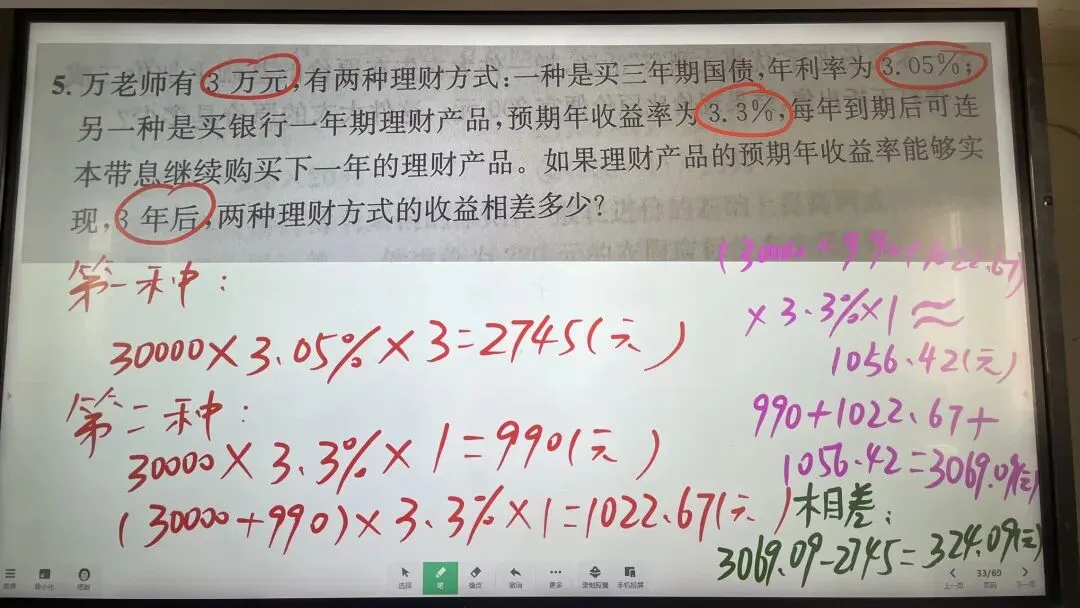 5. 万老师有3万元,有两种理财方式:一种是买三年期国债,年利率为3.05%;
另一种是买银行一年期理财产品,预期年收益率为3.3%,每年到期后可连
本带息继续购买下一年的理财产品。如果理财产品的预期年收益率能够实
现,3年后,两种理财方式的收益相差多少?
第一种:
30000×3.05%×3=2745(元)
第二种:
30000×3.3%×1=990(元)
(30000+990)×3.3%×1=1022.67(元)
(30000+990+1022.67)
×3.3%×1≈
1056.42(元)
990+1022.67+
1056.42=3069.09(元)
相差:
3069.09-2745=324.09(元)
选择 笔 橡皮 撤消 更多 录制胶囊 手机投屏
上一页 33/69 下一页